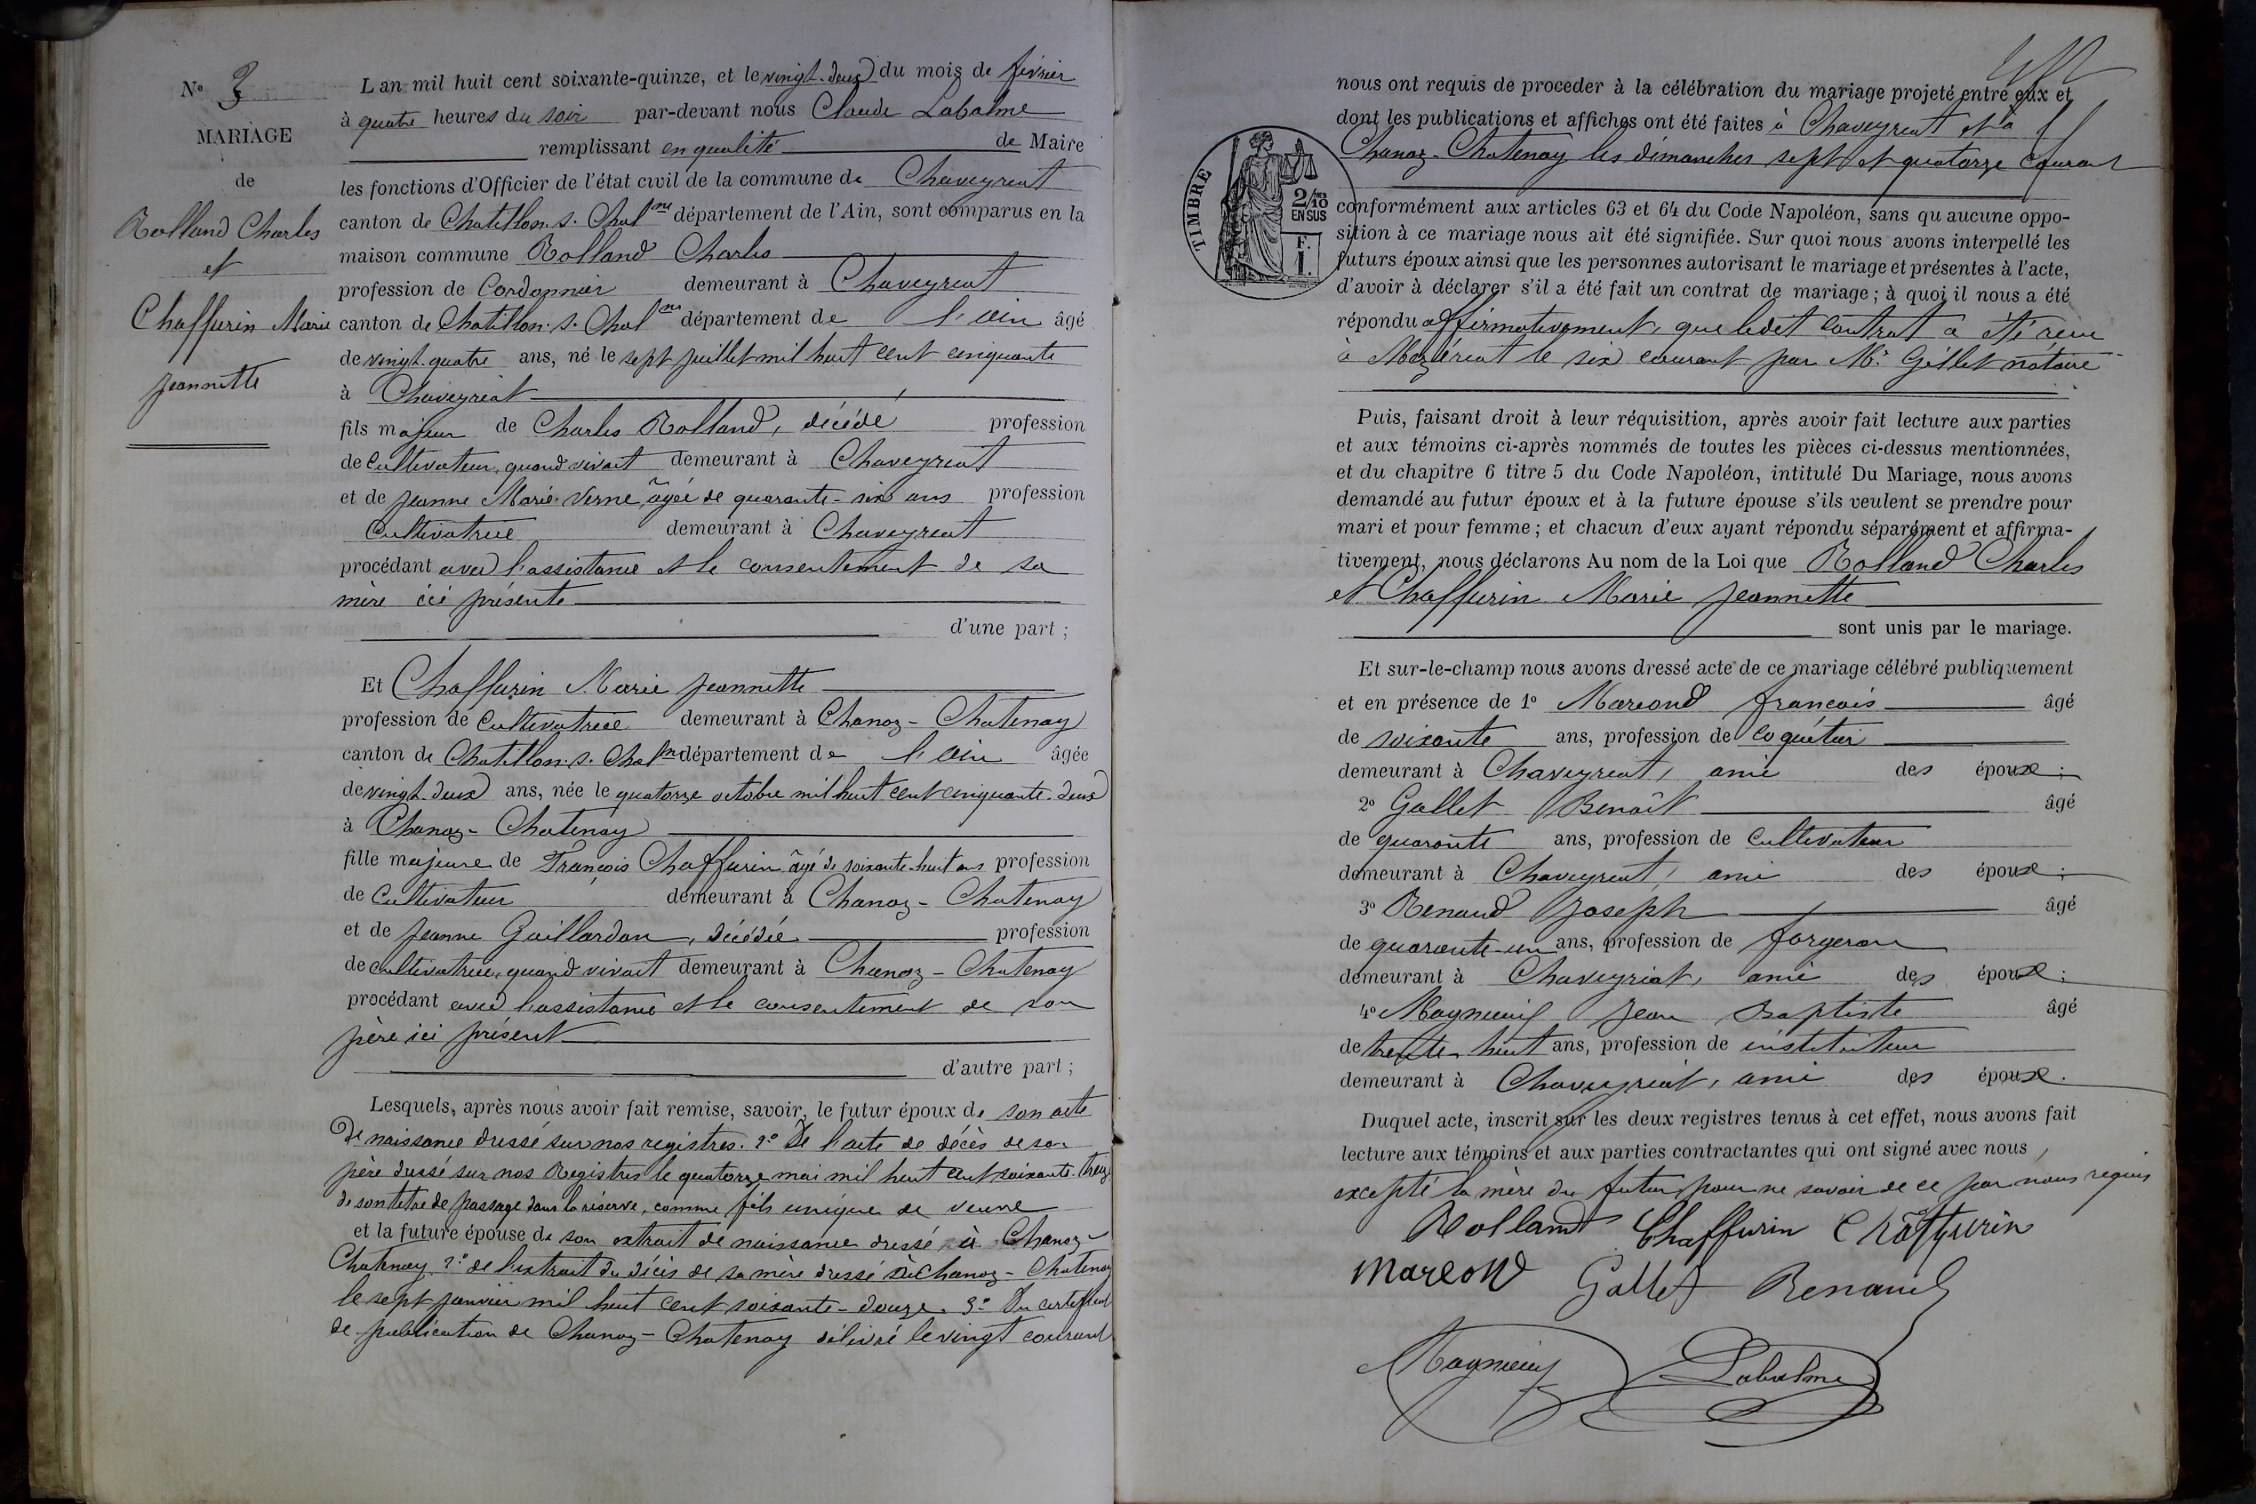 Nº 3
MARIAGE
de
Rolland Charles
et
Chaffurin Marie
Jeannette
L'an mil huit cent soixante-quinze, et le vingt-deux du mois de février
à quatre heures du soir par-devant nous Claude Labalme
remplissant en qualité de Maire
les fonctions d'Officier de l'état civil de la commune de Chaveyriat
canton de Chatillon. s. Chal.ne département de l'Ain, sont comparus en la
maison commune Rolland Charles
profession de Cordonnier demeurant à Chaveyriat
canton de Chatillon. s. Chal.ne département de l'ain âgé
de vingt-quatre ans, né le sept juillet mil huit cent cinquante
à Chaveyriat
fils majeur de Charles Rolland, décédé profession
de cultivateur, quand vivait demeurant à Chaveyriat
et de Jeanne Marie Verne, âgée de quarante-six ans profession
Cultivatrice demeurant à Chaveyriat
procédant avec l'assistance et le consentement de sa
mère ici présente
d'une part ;
Et Chaffurin Marie Jeannette
profession de cultivatrice demeurant à Chanoz-Chatenay
canton de Chatillon. s. Chal.ne département de l'ain âgée
de vingt-deux ans, née le quatorze octobre mil huit cent cinquante-deux
à Chanoz-Chatenay
fille majeure de François Chaffurin âgé de soixante-huit ans profession
de Cultivateur demeurant à Chanoz-Chatenay
et de Jeanne Gaillardon, décédée profession
de cultivatrice, quand vivait demeurant à Chanoz-Chatenay
procédant avec l'assistance et le consentement de son
père ici présent
d'autre part ;
Lesquels, après nous avoir fait remise, savoir, le futur époux de son acte
de naissance dressé sur nos registres. 2º De l'acte de décès de son
père dressé sur nos Registres le quatorze mai mil huit cent soixante-treize
de son titre de passage dans la réserve, comme fils unique de veuve
et la future épouse de son extrait de naissance dressé à Chanoz-
Chatenay 2º de l'extrait du décès de sa mère dressé à Chanoz-Chatenay
le sept janvier mil huit cent soixante-douze. 3º Du certificat
de publication de Chanoz-Chatenay délivré le vingt courant
nous ont requis de procéder à la célébration du mariage projeté entre eux et
dont les publications et affiches ont été faites à Chaveyriat et à
Chanoz-Chatenay les dimanches sept et quatorze courant
TIMBRE
2/10
EN SUS
F.
1.
conformément aux articles 63 et 64 du Code Napoléon, sans qu'aucune oppo-
sition à ce mariage nous ait été signifiée. Sur quoi nous avons interpellé les
futurs époux ainsi que les personnes autorisant le mariage et présentes à l'acte,
d'avoir à déclarer s'il a été fait un contrat de mariage ; à quoi il nous a été
répondu affirmativement, que ledit contrat a été reçu
à Mézériat le six courant par Mr. Gillet notaire
Puis, faisant droit à leur réquisition, après avoir fait lecture aux parties
et aux témoins ci-après nommés de toutes les pièces ci-dessus mentionnées,
et du chapitre 6 titre 5 du Code Napoléon, intitulé Du Mariage, nous avons
demandé au futur époux et à la future épouse s'ils veulent se prendre pour
mari et pour femme ; et chacun d'eux ayant répondu séparément et affirma-
tivement, nous déclarons Au nom de la Loi que Rolland Charles
et Chaffurin Marie Jeannette
sont unis par le mariage.
Et sur-le-champ nous avons dressé acte de ce mariage célébré publiquement
et en présence de 1º Marcond francois âgé
de soixante ans, profession de coquetier
demeurant à Chaveyriat, ami des époux ;
2º Gallet Benoît âgé
de quarante ans, profession de cultivateur
demeurant à Chaveyriat, ami des époux ;
3º Renaud Joseph âgé
de quarante-un ans, profession de forgeron
demeurant à Chaveyriat, ami des époux ;
4º Magnieuf Jean Baptiste âgé
de trente-huit ans, profession de instituteur
demeurant à Chaveyriat, ami des époux.
Duquel acte, inscrit sur les deux registres tenus à cet effet, nous avons fait
lecture aux témoins et aux parties contractantes qui ont signé avec nous,
excepté la mère du futur pour ne savoir de ce par nous requis
Rolland Chaffurin Chaffurin
Marcond Gallet Renaud
Magnieuf Labalme